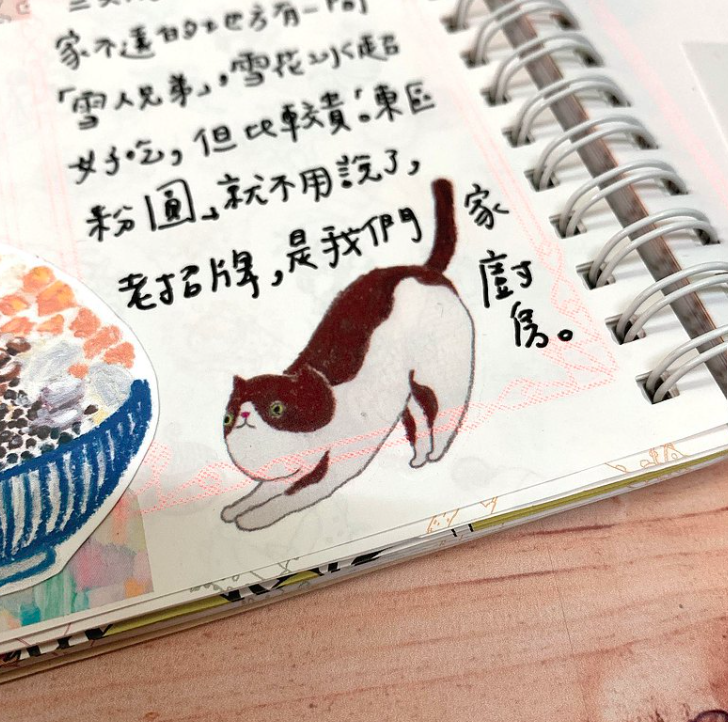 家不遠的地方有一間
「雪人兄弟」,雪花冰超
好吃,但比較貴。「東區
粉圓」就不用說了,
老招牌,是我們家
廚房。